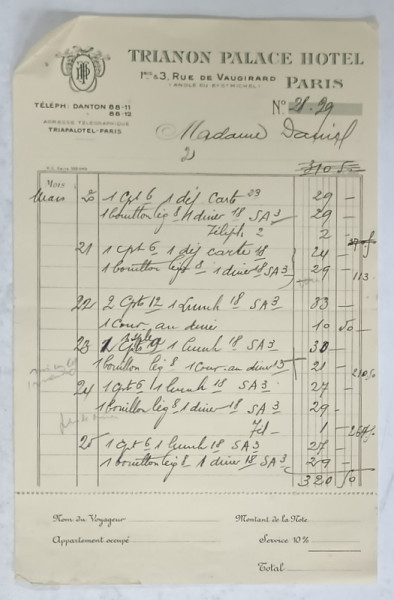 TRIANON PALACE HOTEL
1bis & 3, RUE DE VAUGIRARD
(ANGLE DU BD ST MICHEL)
PARIS
TÉLÉPH: DANTON 88-11
88-12
ADRESSE TÉLÉGRAPHIQUE
TRIAPALOTEL-PARIS
No 28.29
Madame
310 5
Mois
Mars 20 1 Cpt 6 1 déj carte 23 29 —
1 bouillon leg 8 1 diner 18 SA 3 29 —
Téleph 2 2 —
21 1 cpt 6 1 déj carte 18 24 —
1 bouillon leg 8 1 diner 18 SA 3 29 —
113
22 2 Cpts 12 1 Lunch 18 SA 3 83 —
1 Cour au diner 10 50
23 1 Lunch 18 SA 3 30 —
1 bouillon leg 8 1 Cour au diner 13 21 —
24 1 Cpt 6 1 Lunch 18 SA 3 27 —
1 bouillon leg 8 1 diner 18 SA 3 29 —
1 —
25 1 Cpt 6 1 Lunch 18 SA 3 27 —
1 bouillon leg 8 1 diner 18 SA 3 29 —
320 50
Nom du Voyageur
Montant de la Note
Appartement occupé
Service 10%
Total